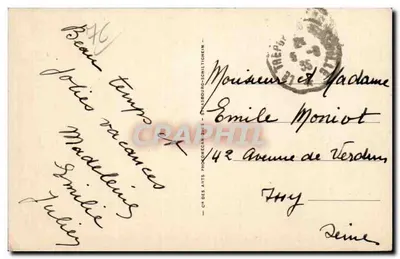 76
Beau temps et
jolies vacances
Madeleine
Emilie
Julien
Cie DES ARTS PHOTOMECANIQUES - STRASBOURG-SCHILTIGHEIM
LE TREPORT
CARAPHIL
Monsieur et Madame
Emile Moniot
42 Avenue de Verdun
Issy
Seine